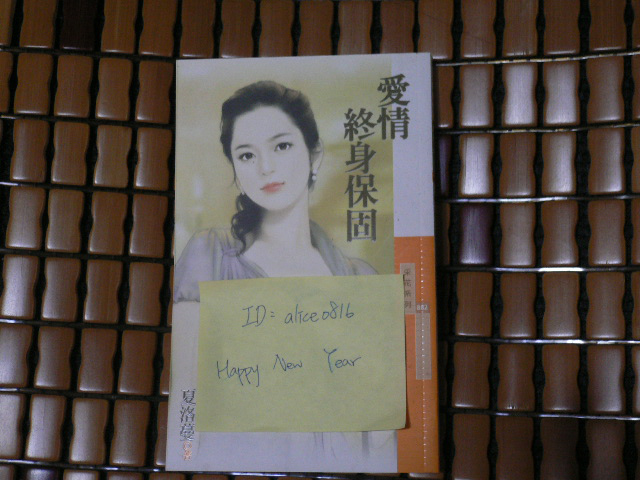 愛情
終身保固
ID: alice0816
Happy New Year
夏洛蔓